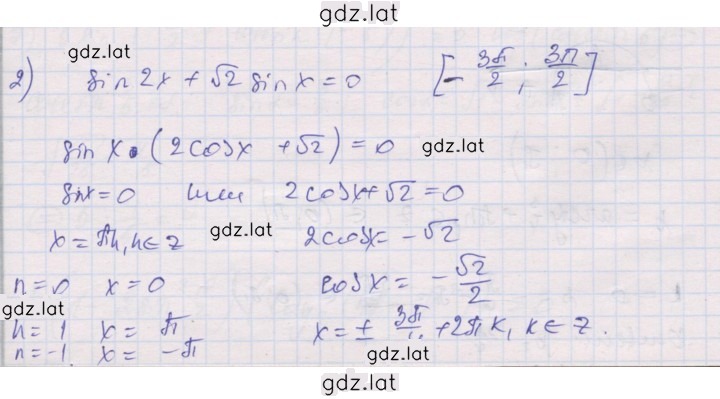 gdz.lat
gdz.lat
2) sin 2x + √2 sin x = 0 [- 3π/2 ; 3π/2]
sin x • (2cosx + √2) = 0 gdz.lat
sinx = 0 или 2cosx + √2 = 0
x = πn, n ∈ z gdz.lat 2cosx = -√2
n = 0 x = 0 cosx = - √2/2
gdz.lat
n = 1 x = π x = ± 3π/4 + 2πk, k ∈ z.
n = -1 x = -π
gdz.lat
gdz.lat